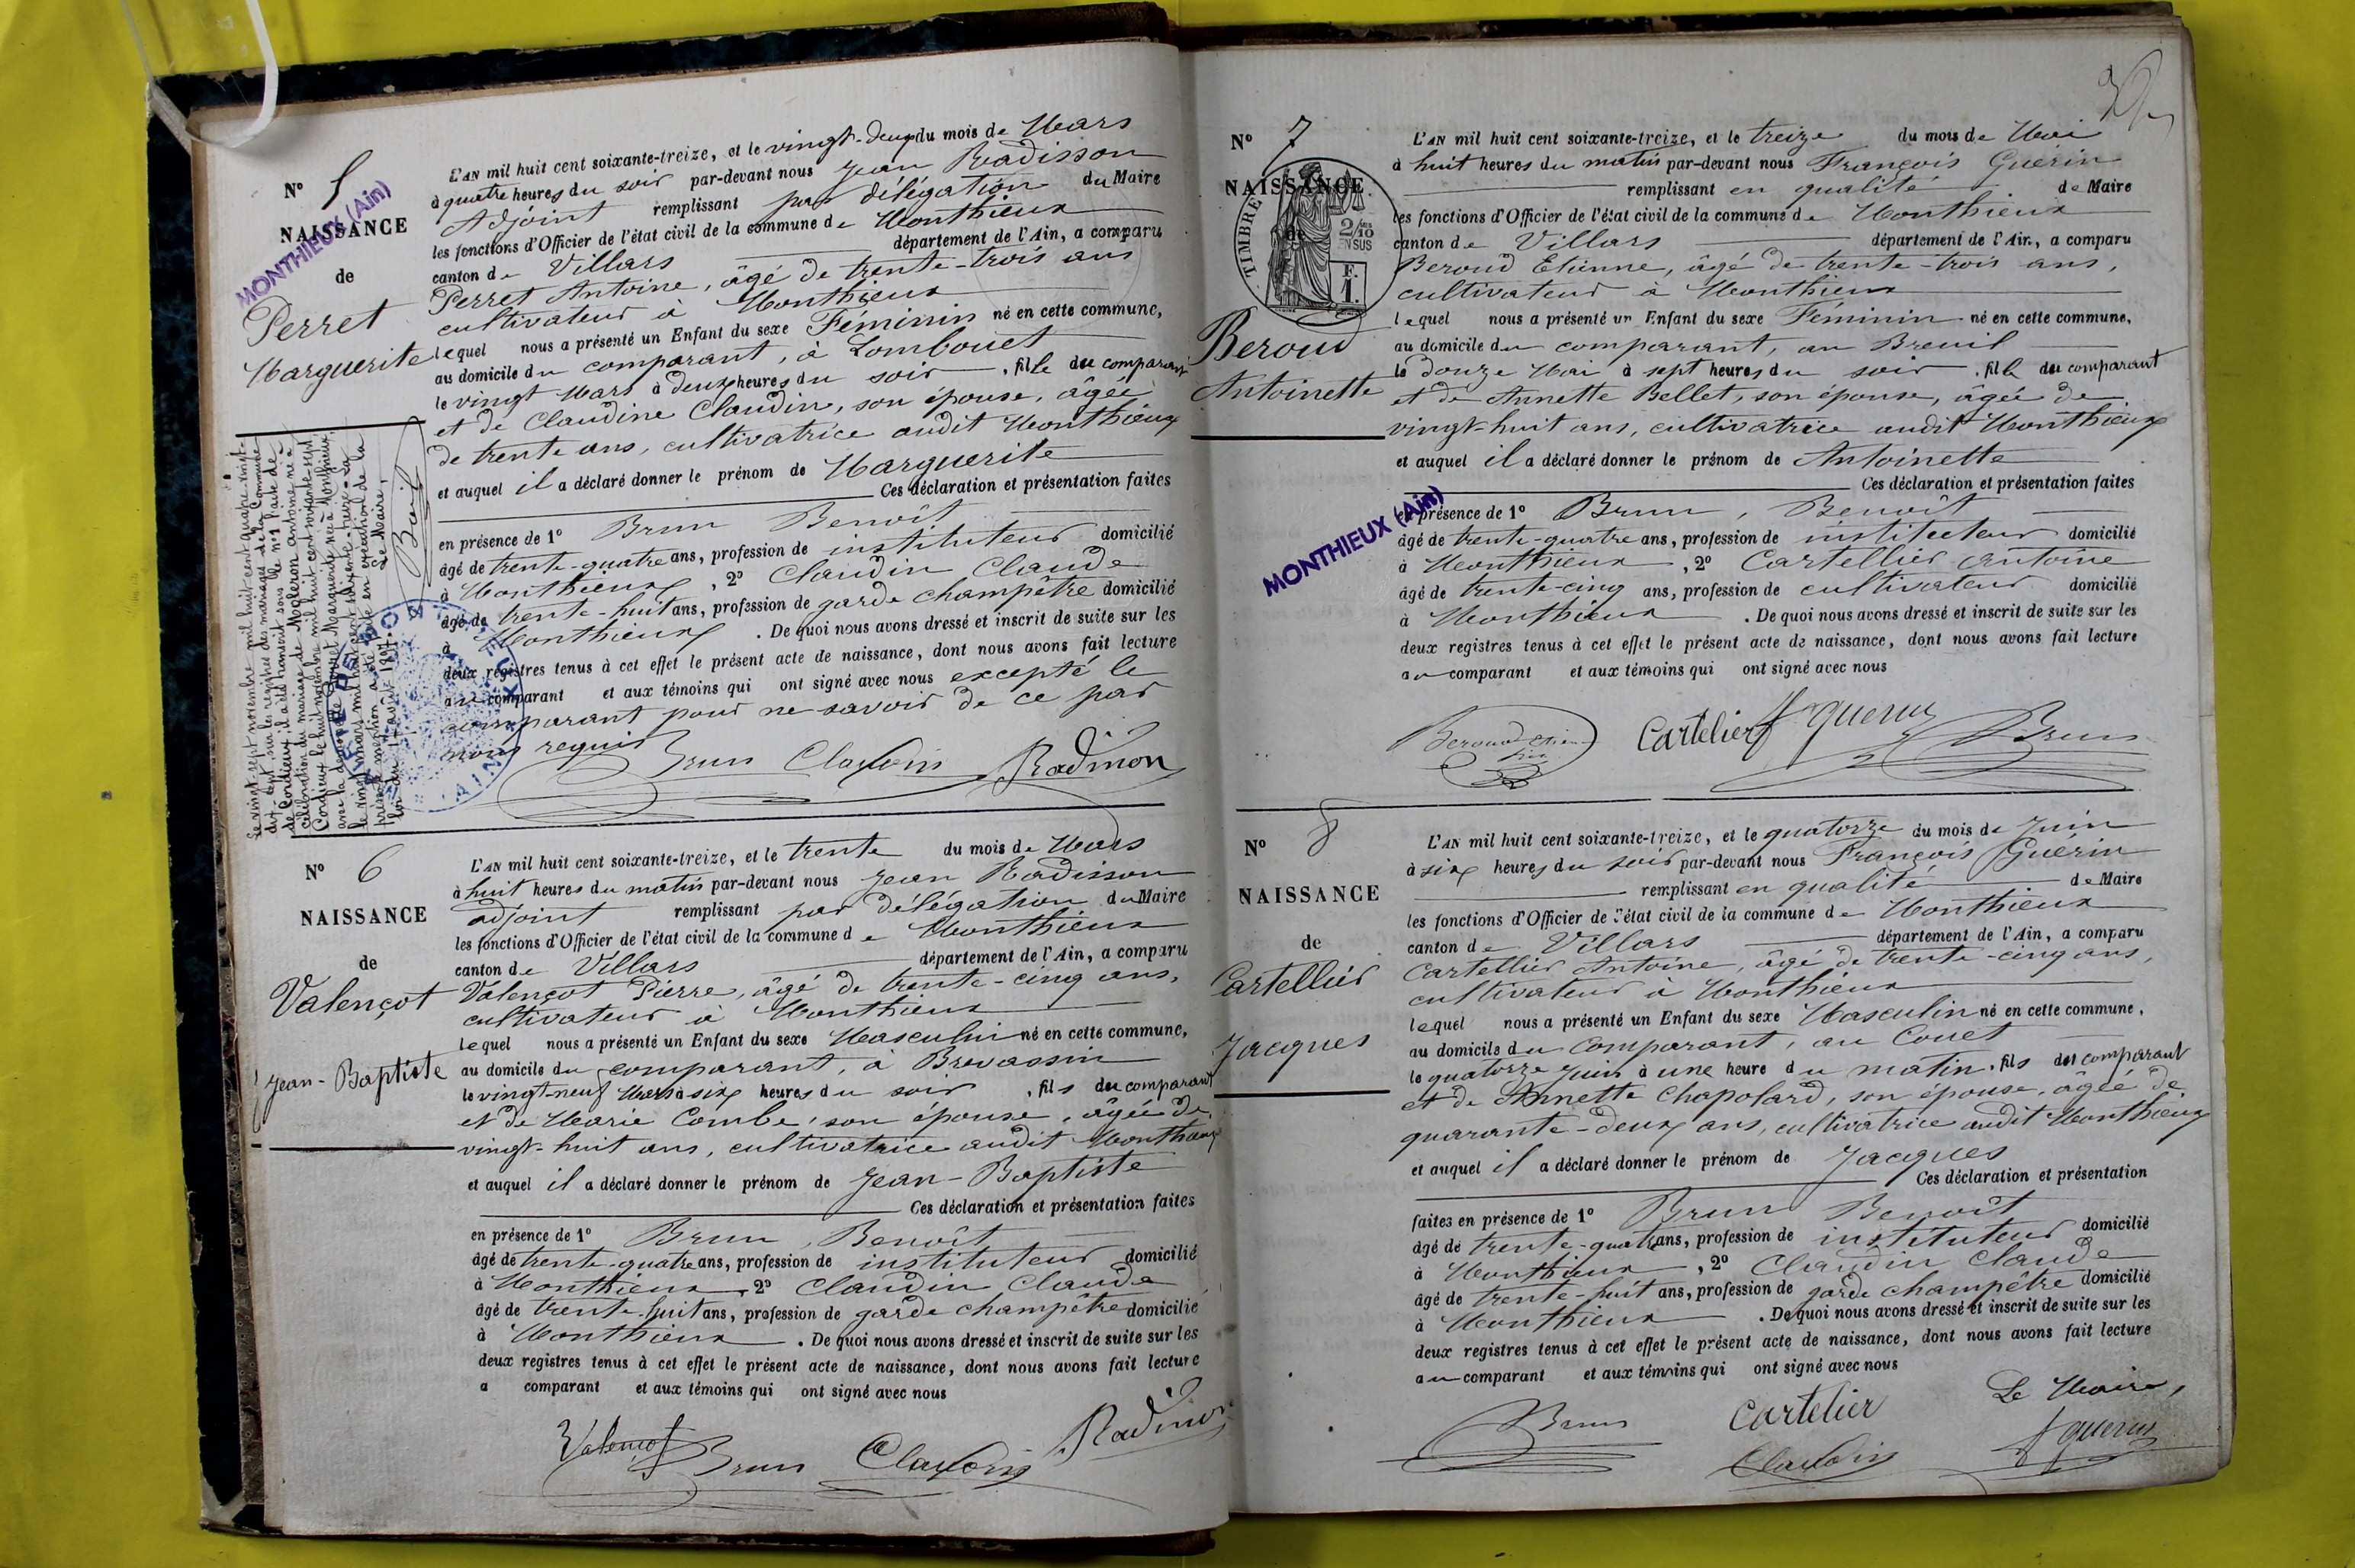 N° 5
NAISSANCE
de
Perret
Marguerite
MONTHIEUX (Ain)
L'AN mil huit cent soixante-treize, et le vingt-deux du mois de Mars
à quatre heures du soir par-devant nous Jean Radisson
Adjoint remplissant par délégation du Maire
les fonctions d'Officier de l'état civil de la commune de Monthieux
canton de Villars département de l'Ain, a comparu
Perret Antoine, âgé de trente-trois ans
cultivateur à Monthieux
lequel nous a présenté un Enfant du sexe Féminin né en cette commune,
au domicile du comparant, à Lombouet
le vingt Mars à deux heures du soir, fille du comparant
et de Claudine Claudin, son épouse, âgée
de trente ans, cultivatrice audit Monthieux
et auquel il a déclaré donner le prénom de Marguerite
Ces déclaration et présentation faites
en présence de 1° Brun Benoît
âgé de trente-quatre ans, profession de instituteur domicilié
à Monthieux, 2° Claudin Claude
âgé de trente-huit ans, profession de garde champêtre domicilié
à Monthieux. De quoi nous avons dressé et inscrit de suite sur les
deux registres tenus à cet effet le présent acte de naissance, dont nous avons fait lecture
au comparant et aux témoins qui ont signé avec nous excepté le
comparant pour ne savoir de ce par
nous requis
Brun Claudin Radisson
Le vingt-sept novembre mil huit cent quatre-vingt-
dix-sept sur les registres des mariages de la Commune
de Cordieux, il a été transcrit sous le n° 1 l'acte de
célébration du mariage de Moleron Antoine né à
Cordieux le huit novembre mil huit cent soixante-sept
avec la demoiselle Perret Marguerite née à Monthieux,
le vingt mars mil huit cent soixante-treize. La
présente mention a été faite en exécution de la
loi du 17 août 1897.
Le Maire,
N° 6
NAISSANCE
de
Valençot
Jean-Baptiste
L'AN mil huit cent soixante-treize, et le trente du mois de Mars
à huit heures du matin par-devant nous Jean Radisson
adjoint remplissant par délégation du Maire
les fonctions d'Officier de l'état civil de la commune de Monthieux
canton de Villars département de l'Ain, a comparu
Valençot Pierre, âgé de trente-cinq ans,
cultivateur à Monthieux
lequel nous a présenté un Enfant du sexe Masculin né en cette commune,
au domicile du comparant, à Brevassin
le vingt-neuf Mars à six heures du soir, fils du comparant
et de Marie Combe, son épouse, âgée de
vingt-huit ans, cultivatrice audit Monthieux
et auquel il a déclaré donner le prénom de Jean-Baptiste
Ces déclaration et présentation faites
en présence de 1° Brun, Benoît
âgé de trente-quatre ans, profession de instituteur domicilié
à Monthieux, 2° Claudin Claude
âgé de trente-huit ans, profession de garde champêtre domicilié
à Monthieux. De quoi nous avons dressé et inscrit de suite sur les
deux registres tenus à cet effet le présent acte de naissance, dont nous avons fait lecture
a comparant et aux témoins qui ont signé avec nous
Valençot Brun Claudin Radisson
N° 7
NAISSANCE
de
TIMBRE
2/10 EN SUS
F.
1.
Beroud
Antoinette
MONTHIEUX (Ain)
L'AN mil huit cent soixante-treize, et le treize du mois de Mai
à huit heures du matin par-devant nous François Guérin
remplissant en qualité de Maire
les fonctions d'Officier de l'état civil de la commune de Monthieux
canton de Villars département de l'Ain, a comparu
Beroud Etienne, âgé de trente-trois ans,
cultivateur à Monthieux
lequel nous a présenté un Enfant du sexe Féminin né en cette commune,
au domicile du comparant, au Breuil
le douze Mai à sept heures du soir, fille du comparant
et de Annette Bellet, son épouse, âgée de
vingt-huit ans, cultivatrice audit Monthieux
et auquel il a déclaré donner le prénom de Antoinette
Ces déclaration et présentation faites
en présence de 1° Brun, Benoît
âgé de trente-quatre ans, profession de instituteur domicilié
à Monthieux, 2° Cartellier Antoine
âgé de trente-cinq ans, profession de cultivateur domicilié
à Monthieux. De quoi nous avons dressé et inscrit de suite sur les
deux registres tenus à cet effet le présent acte de naissance, dont nous avons fait lecture
au comparant et aux témoins qui ont signé avec nous
Beroud Cartelier f guerin Brun
N° 8
NAISSANCE
de
Cartellier
Jacques
L'AN mil huit cent soixante-treize, et le quatorze du mois de Juin
à six heures du soir par-devant nous François Guérin
remplissant en qualité de Maire
les fonctions d'Officier de l'état civil de la commune de Monthieux
canton de Villars département de l'Ain, a comparu
Cartellier Antoine, âgé de trente-cinq ans,
cultivateur à Monthieux
lequel nous a présenté un Enfant du sexe Masculin né en cette commune,
au domicile du comparant, au Couet
le quatorze Juin à une heure du matin, fils du comparant
et de Annette Chapolard, son épouse, âgée de
quarante-deux ans, cultivatrice audit Monthieux
et auquel il a déclaré donner le prénom de Jacques
Ces déclaration et présentation
faites en présence de 1° Brun Benoît
âgé de trente-quatre ans, profession de instituteur domicilié
à Monthieux, 2° Claudin Claude
âgé de trente-huit ans, profession de garde champêtre domicilié
à Monthieux. De quoi nous avons dressé et inscrit de suite sur les
deux registres tenus à cet effet le présent acte de naissance, dont nous avons fait lecture
au comparant et aux témoins qui ont signé avec nous
Le Maire,
Brun Cartelier f guerin
Claudin